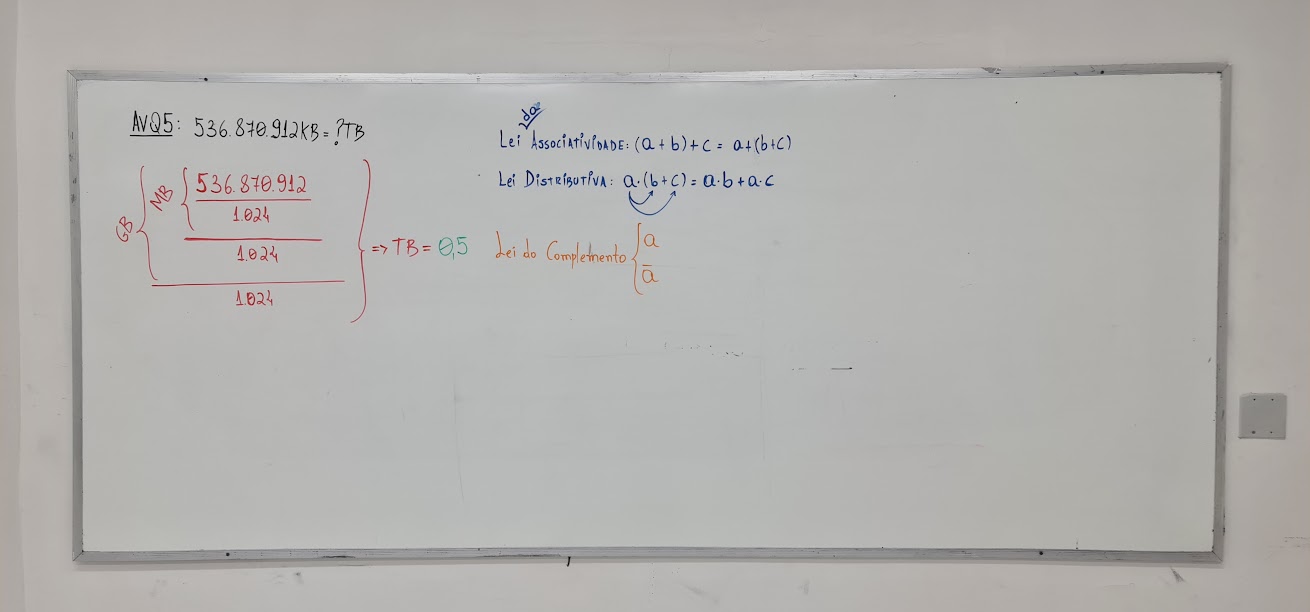 AVQ5: 536.870.912KB = ?TB
GB
MB
536.870.912
1.024
1.024
1.024
=> TB = 0,5
da
Lei Associatividade: (a + b) + c = a + (b + c)
Lei Distributiva: a·(b + c) = a·b + a·c
Lei do Complemento
a
ā